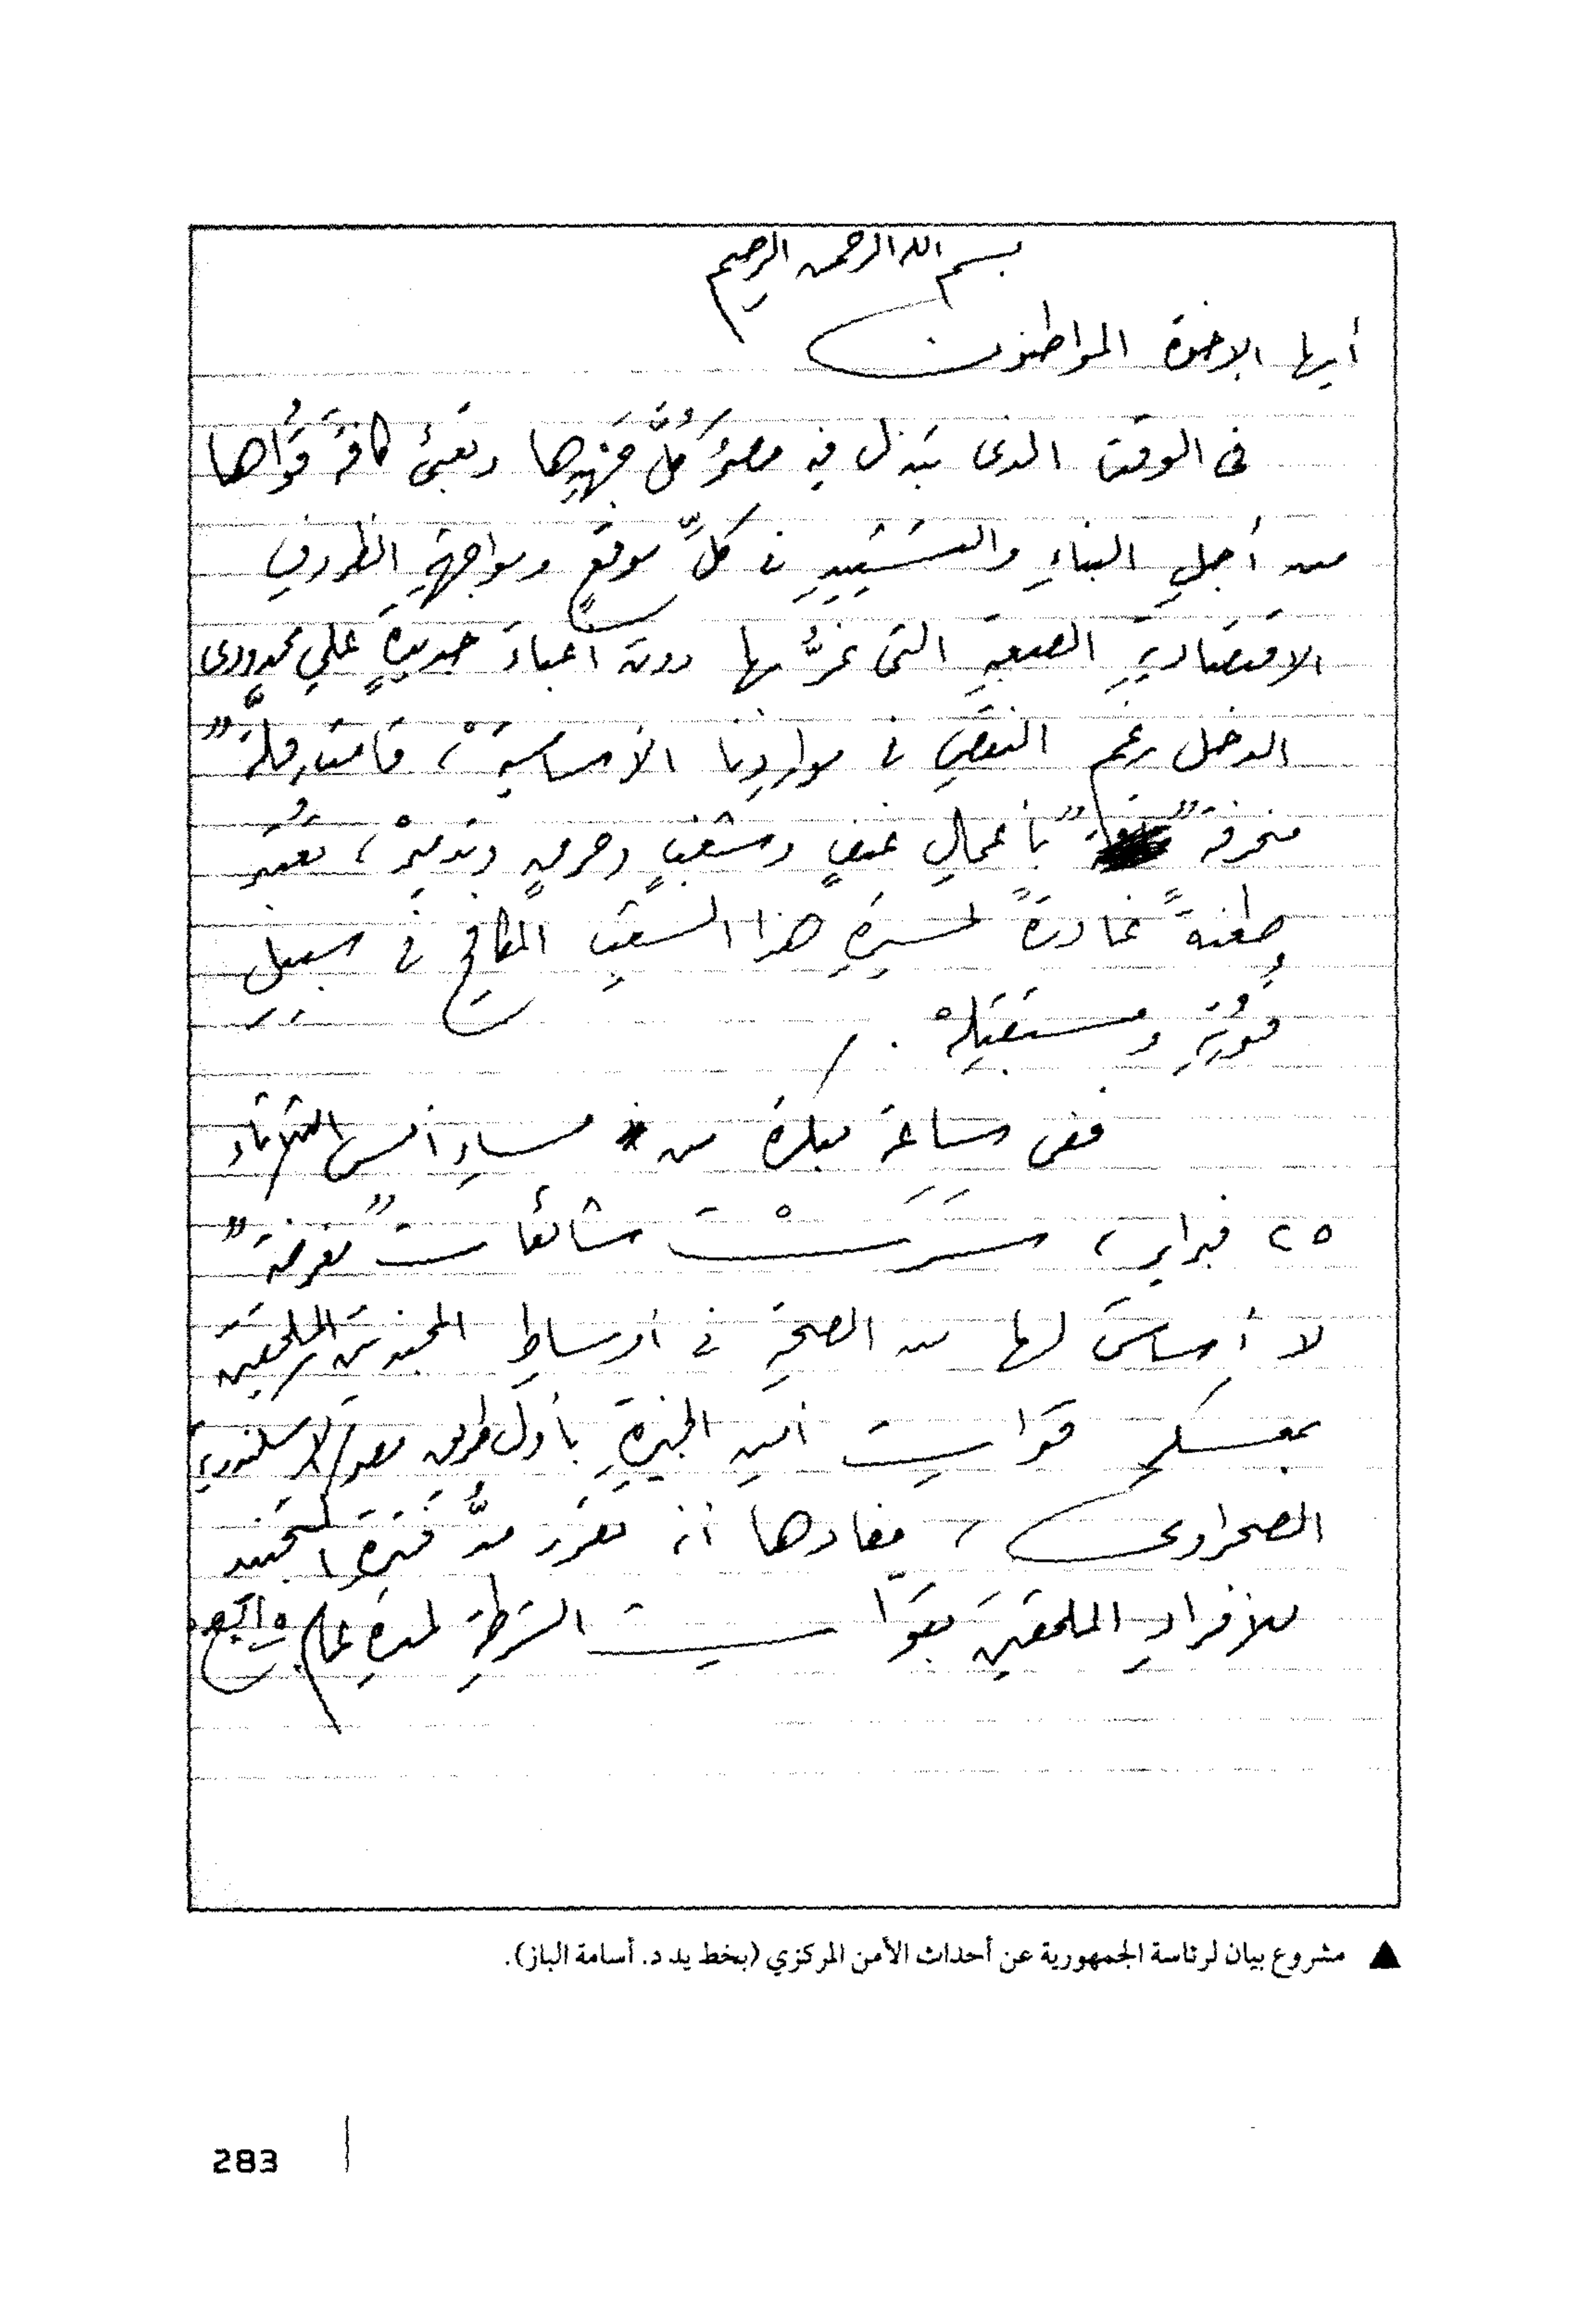 بسم الله الرحمن الرحيم
أيها الاخوة المواطنون
فى الوقت الذى تبذل فيه مصرُ كُلَّ جَهْدِها وتعبئ كافةَ قُوَاها
من أجلِ البناءِ والتشييدِ فى كلِّ موقعٍ ومواجهةِ الظروفِ
الاقتصاديةِ الصعبةِ التى نمرُّ بها دون أعباءَ جديدةٍ على محدودى
الدخل رغم النقصِ فى مواردِنا الأساسيةْ ، قامت قلَّةٌ "
منحرفة " بأعمالِ عنفٍ وشغبٍ وحرقٍ وتدميرْ ، تُعتبر
طعنةً غادرةً لمسيرةِ هذا الشعبِ المكافحِ فى سبيل
قُوتِهِ ومستقبَلِهْ . /
ففى ساعة مبكرة من مساءِ أمس الثلاثاء
٢٥ فبراير ، سَرَتْ شائعات " مغرضة "
لا أساسَ لها من الصحةِ فى أوساطِ المجندينَ الملحقينَ
بمعسكر قوات أمنِ الجيزةِ بأول طريق مصر/الاسكندرية
الصحراوى ، مفادها أنه تقرر مدُّ فترةِ التجنيد
للأفرادِ الملحقينَ بقوّات الشرطةِ لمدةِ عام
▲ مشروع بيان لرئاسة الجمهورية عن أحداث الأمن المركزي (بخط يد د. أسامة الباز).
283